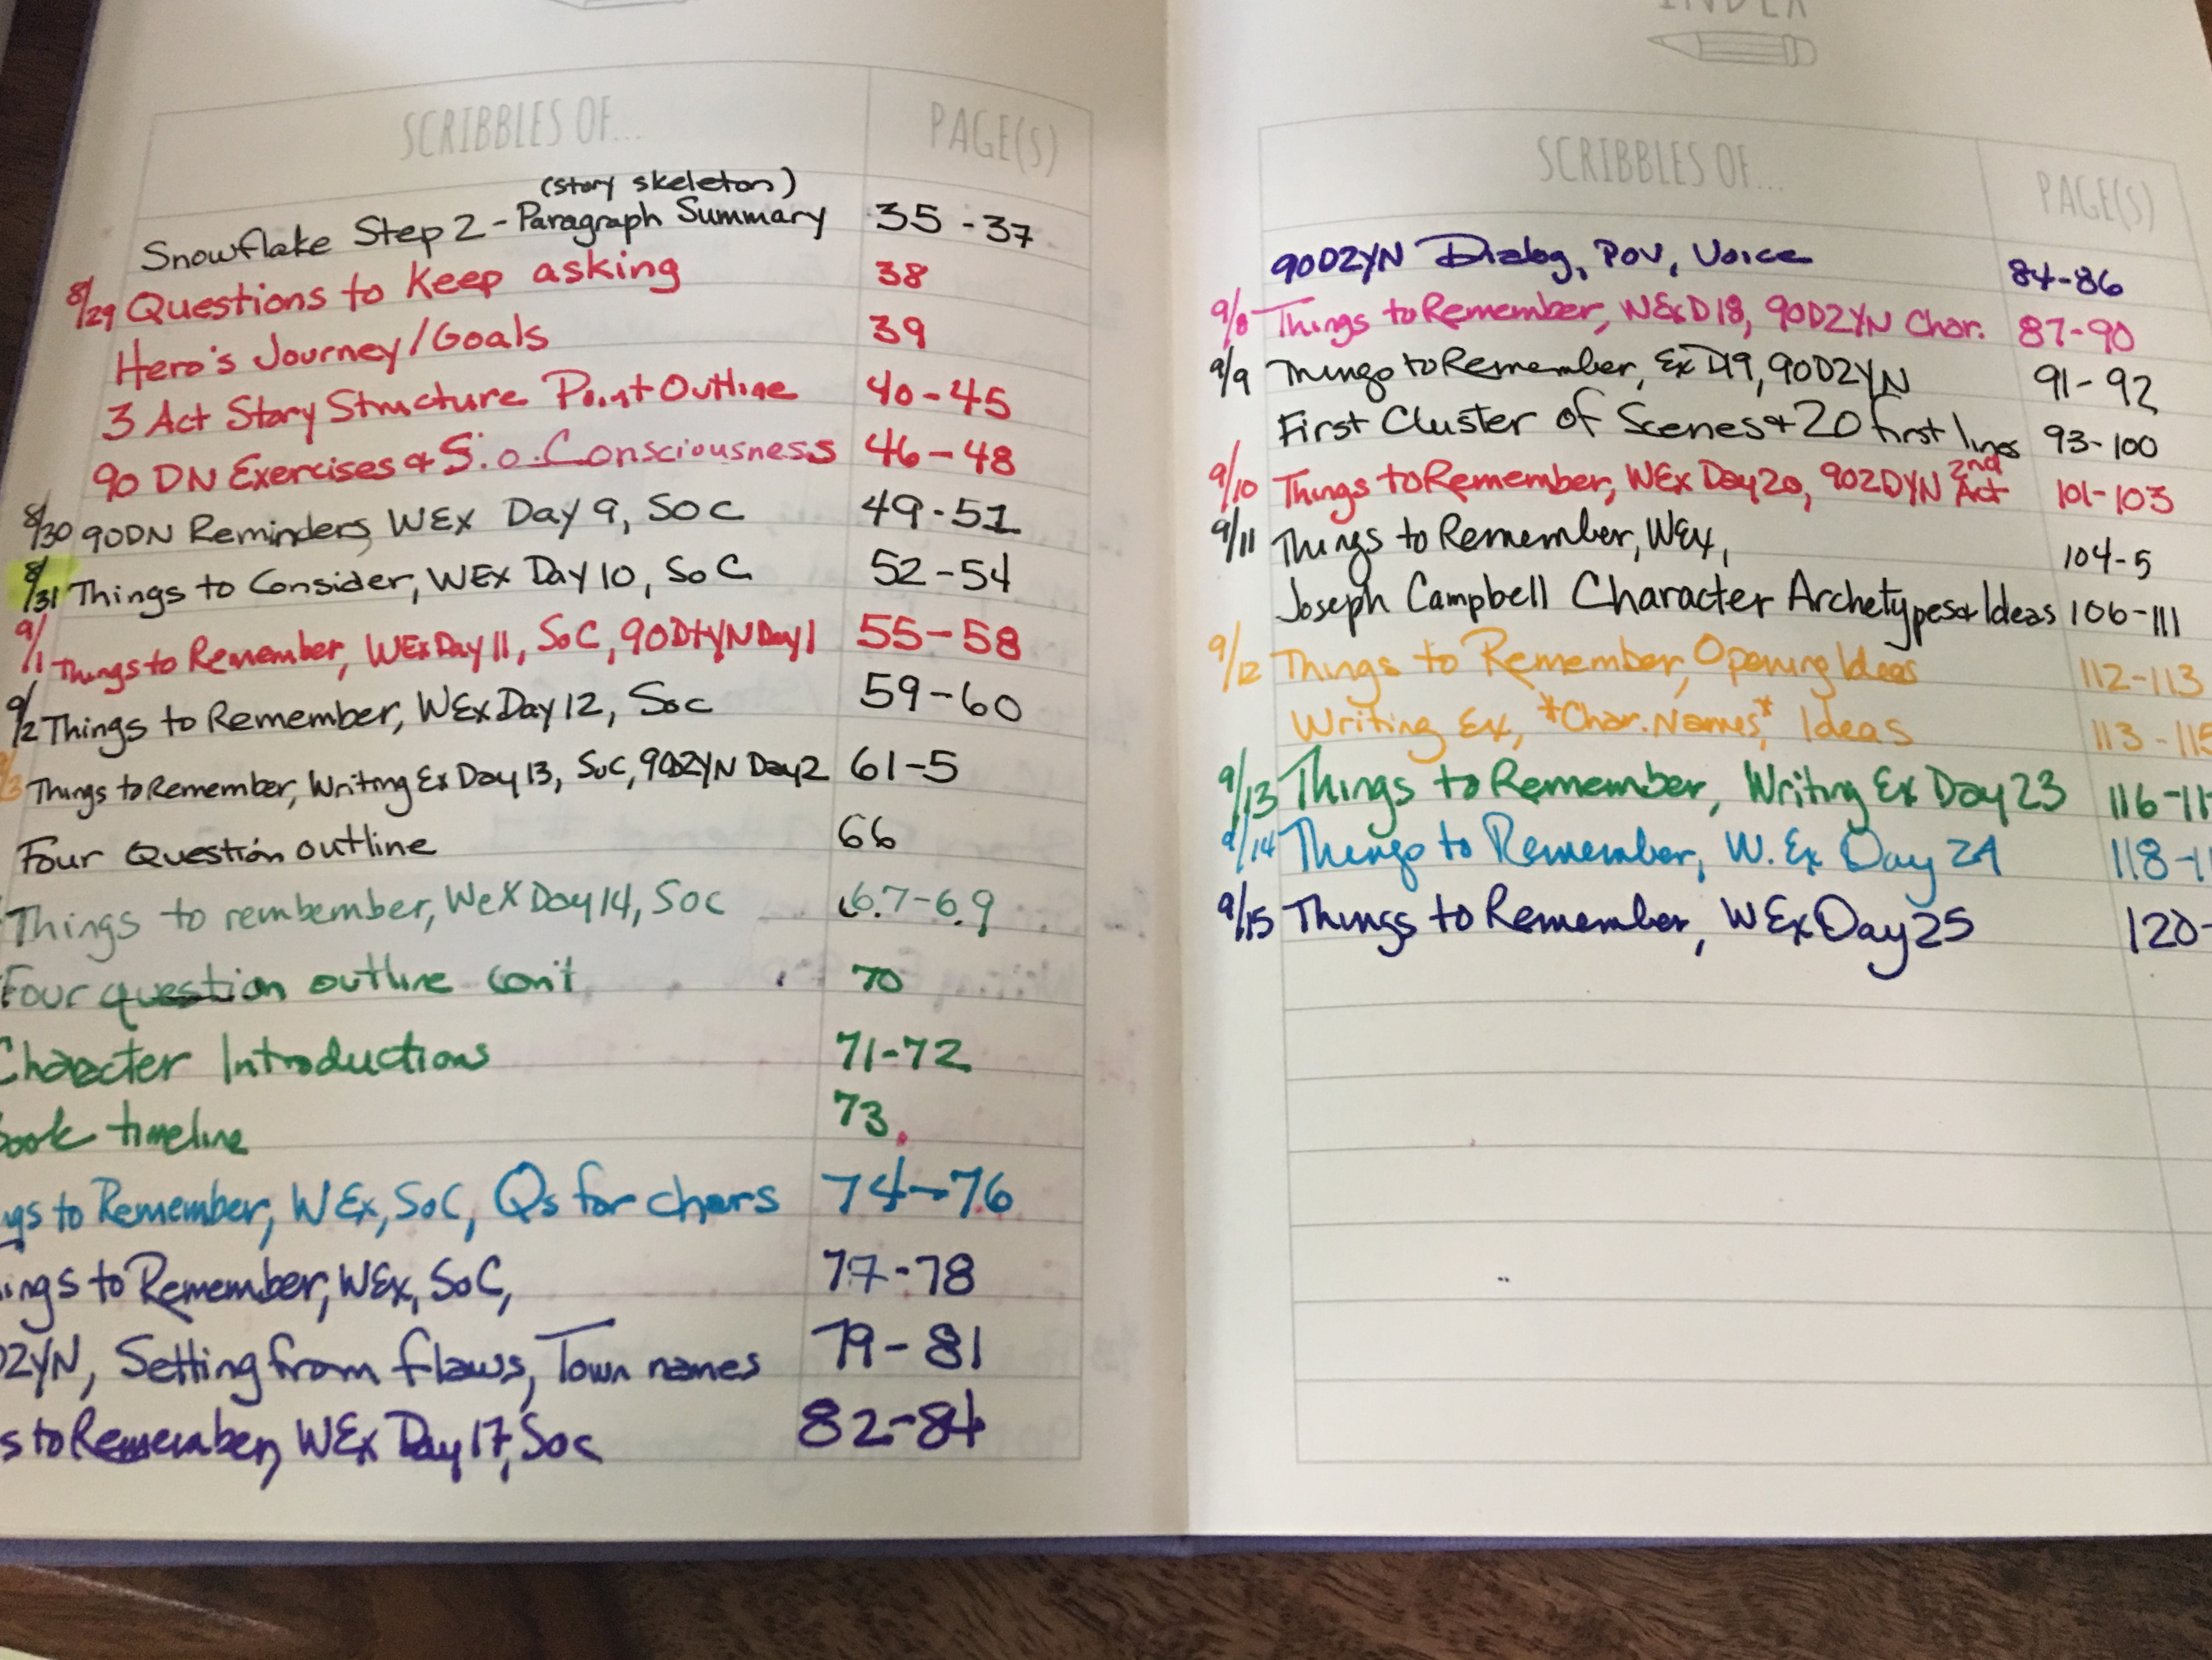 SCRIBBLES OF... PAGE(S)
(story skeleton)
Snowflake Step 2 - Paragraph Summary 35-37
8/29 Questions to keep asking 38
Hero's Journey/Goals 39
3 Act Story Structure Point Outline 40-45
90 DN Exercises & S.o.Consciousness 46-48
8/30 90DN Reminders, WEx Day 9, SoC 49-51
8/31 Things to Consider, WEx Day 10, SoC 52-54
9/1 Things to Remember, WEx Day 11, SoC, 90DtYN Day 1 55-58
9/2 Things to Remember, WEx Day 12, SoC 59-60
/3 Things to Remember, Writing Ex Day 13, SoC, 90D2YN Day 2 61-5
Four Question outline 66
Things to rembember, WeX Day 14, SoC 67-69
Four question outline con't 70
Character Introductions 71-72
ook timeline 73
ngs to Remember, WEx, SoC, Qs for chars 74-76
ings to Remember, WEx, SoC, 77-78
D2YN, Setting from flaws, Town names 79-81
s to Remember, WEx Day 17, SoC 82-84
INDEX
SCRIBBLES OF... PAGE(S)
90D2YN Dialog, POV, Voice 84-86
9/8 Things to Remember, WExD18, 90D2YN Char. 87-90
9/9 Things to Remember, Ex D19, 90D2YN 91-92
First Cluster of Scenes & 20 first lines 93-100
9/10 Things to Remember, WEx Day 20, 902DYN 2nd Act 101-103
9/11 Things to Remember, WEx, 104-5
Joseph Campbell Character Archetypes & Ideas 106-111
9/12 Things to Remember, Opening Ideas 112-113
Writing Ex, *Char. Names*, Ideas 113-115
9/13 Things to Remember, Writing Ex Day 23 116-11
9/14 Things to Remember, W. Ex Day 24 118-1
9/15 Things to Remember, WEx Day 25 120-